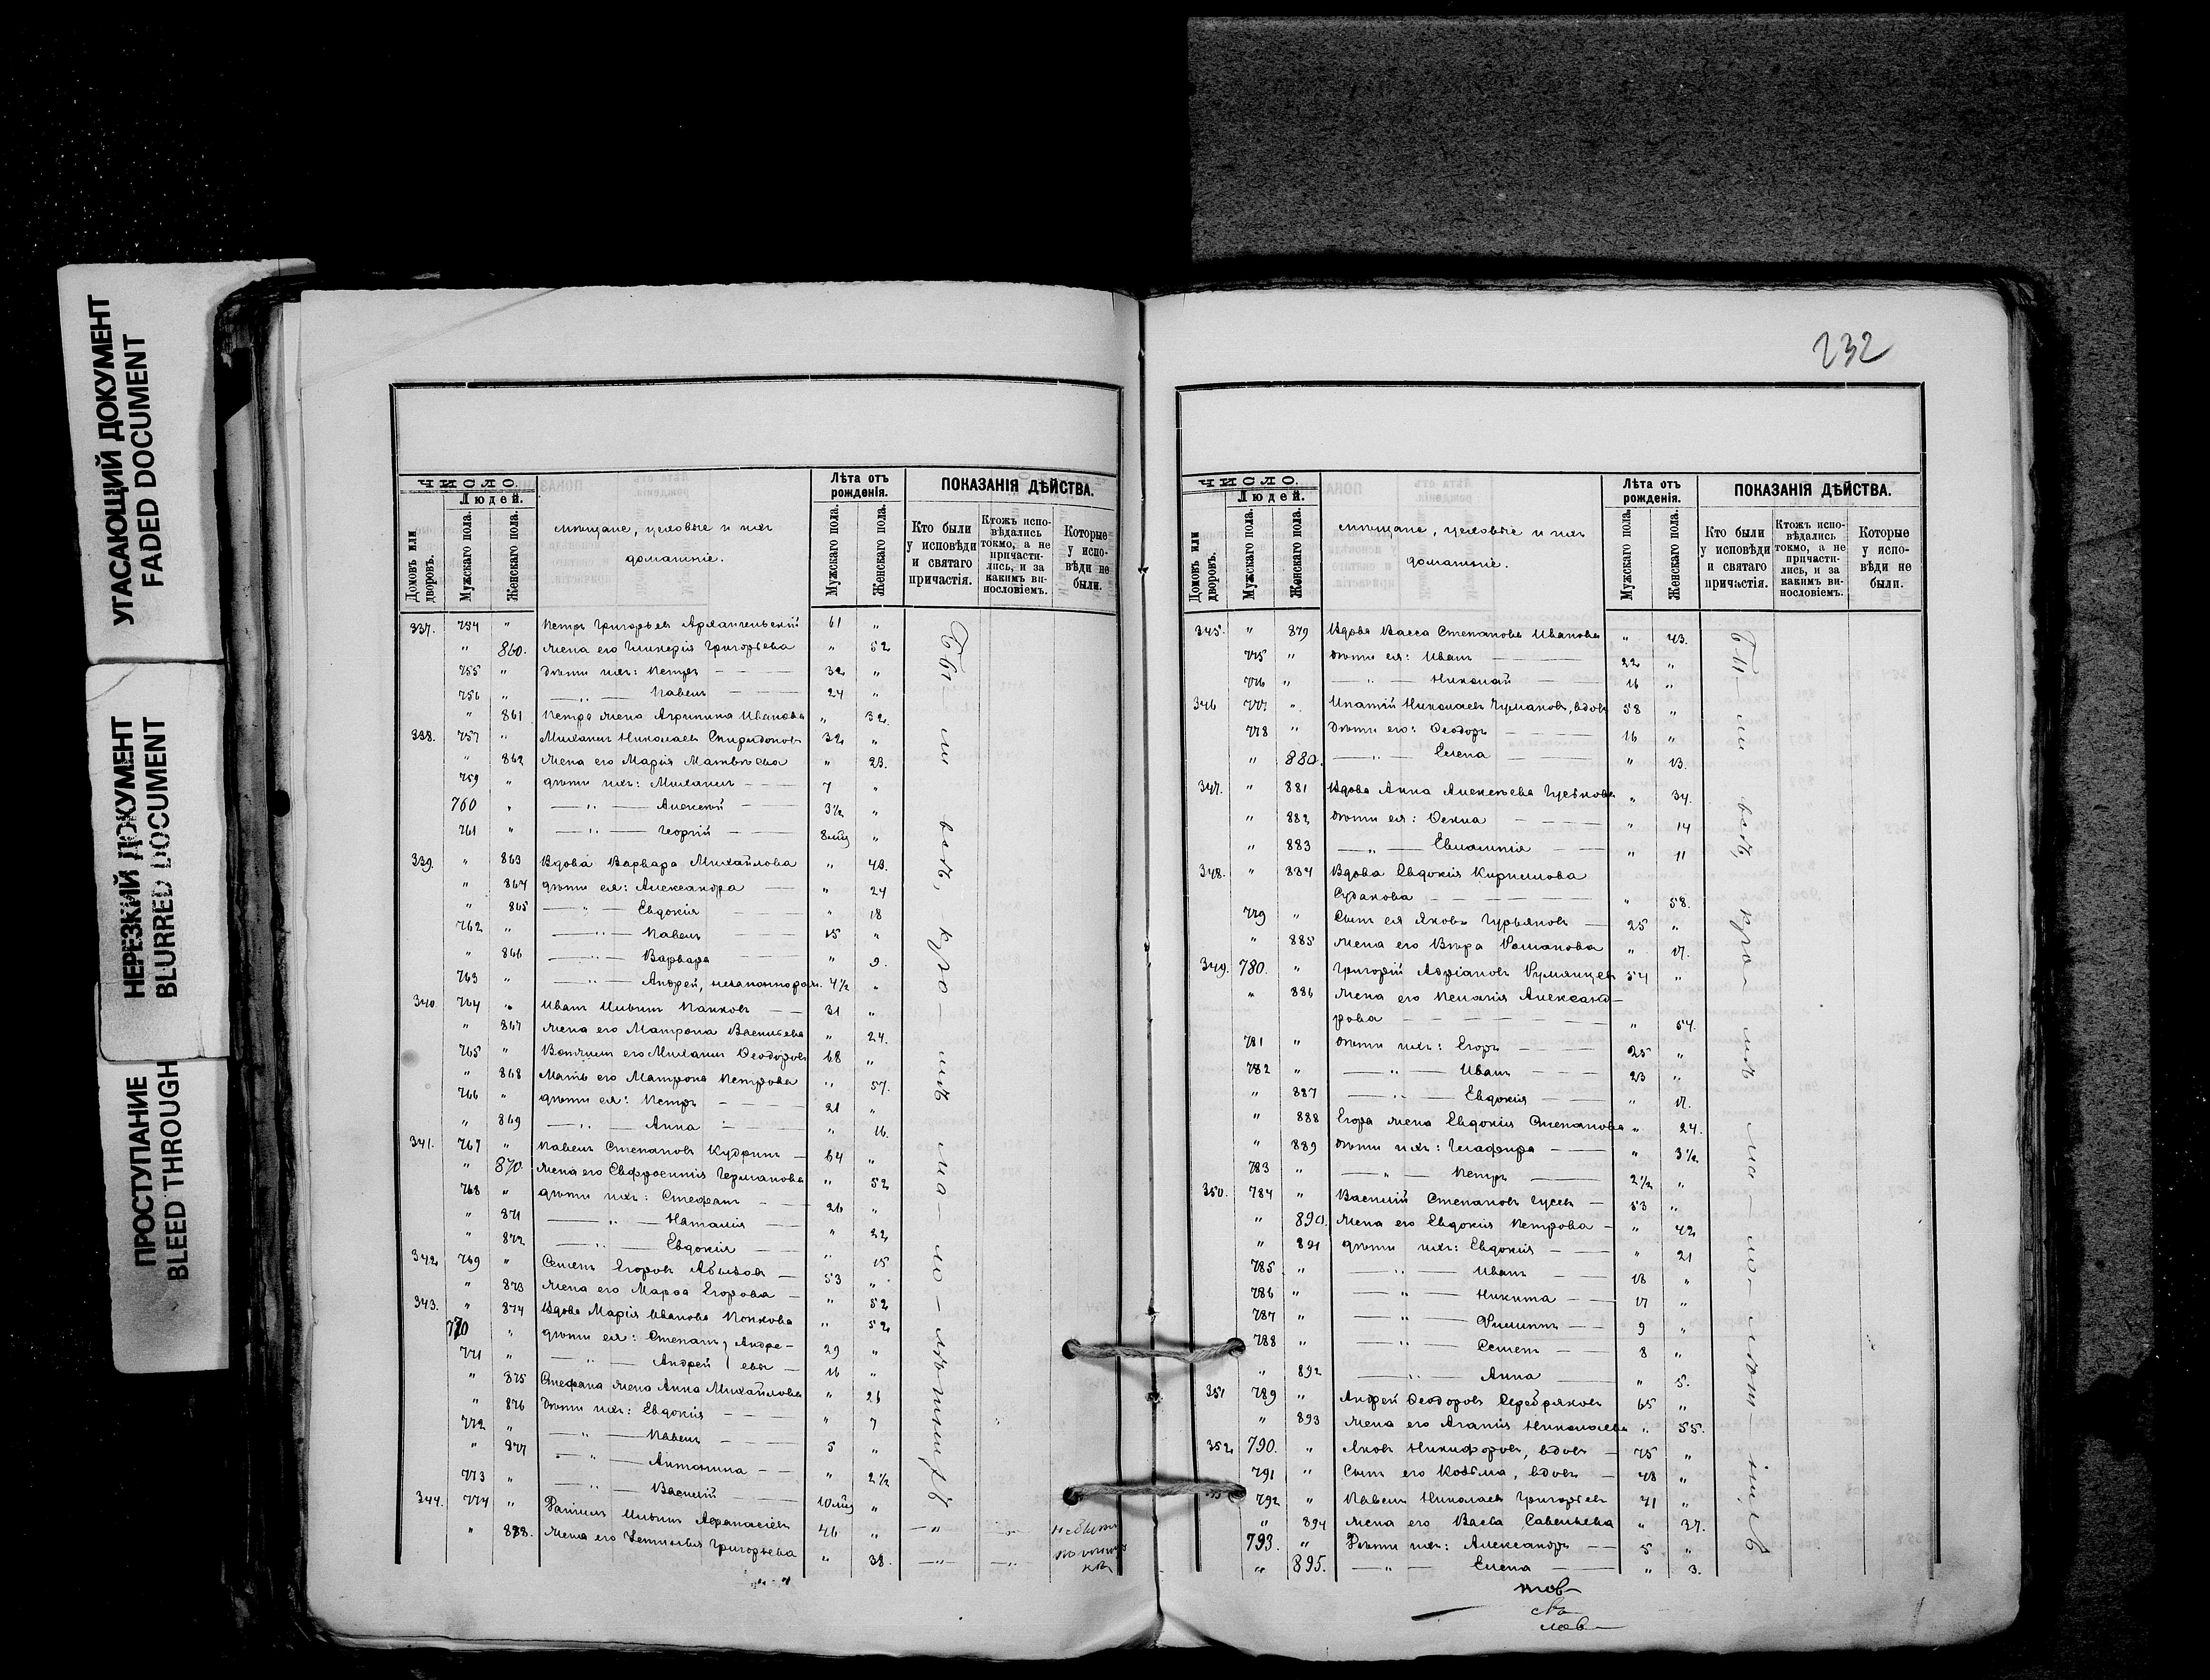 УГАСАЮЩИЙ ДОКУМЕНТ
FADED DOCUMENT
НЕРЕЗКИЙ ДОКУМЕНТ
BLURRED DOCUMENT
ПРОСТУПАНИЕ
BLEED THROUGH
ЧИСЛО
Людей.
Домовъ или дворовъ.
Мужскаго пола.
Женскаго пола.
мѣщане, цеховые и ихъ
домашніе.
Лѣта отъ рожденія.
Мужскаго пола.
Женскаго пола.
ПОКАЗАНІЯ ДѢЙСТВА.
Кто были у исповѣди и святаго причастія.
Ктожъ исповѣдались токмо, а не причастились, и за какимъ винословіемъ.
Которые у исповѣди не были.
337. 754 " Петръ Григорьевъ Архангельскій 61 "
" 860. Жена его Гликерія Григорьева " 52
755 " Дѣти ихъ: Петръ 32 "
756 " —"— Павелъ 24 "
" 861 Петра жена Агрипина Иванова " 32.
338. 757 " Михаилъ Николаевъ Спиридоновъ 32 "
" 862 Жена его Марія Матвѣева " 23.
759 " дѣти ихъ: Михаилъ 7 "
760 " —"— Алексѣй 3½ "
761 " —"— Георгій 8 мц "
339. " 863 Вдова Варвара Михайлова " 43.
" 864 дѣти ея: Александра " 24
" 865 —"— Евдокія " 18
762 " —"— Павелъ 15 "
" 866 —"— Варвара " 9.
763 " —"— Андрей, незаконнорож. 4½ "
340. 764 " Иванъ Ильинъ Панковъ 31 "
" 867 Жена его Матрона Васильева " 24.
765 " Вотчимъ его Михаилъ Ѳеодоровъ 68 "
" 868 Мать его Матрона Петрова " 57.
766 " дѣти ея: Петръ 21 "
" 869 —"— Анна " 16.
341. 767 " Павелъ Степановъ Кудринъ 64 "
" 870 Жена его Евфросинія Германова " 52
768 " дѣти ихъ: Стефанъ 26 "
" 871 —"— Наталія " 22
" 872 —"— Евдокія " 15
342 769 " Семенъ Егоровъ 53 "
" 873 Жена его Марѳа Егорова " 52
343. " 874 Вдова Марія Иванова Попкова " 52
770 " дѣти ея: Степанъ } Андре- 29 "
771 " —"— Андрей } евы 16 "
" 875 Стефана жена Анна Михайлова " 26
" 876 Дѣти ихъ: Евдокія " 7
772 " —"— Павелъ 5 "
" 877 —"— Антонина " 2½
773 " —"— Василій 10 мц "
344. 774 " Даніилъ Ильинъ Аѳанасіевъ 46 " —"— —"—
" 878. Жена его Григорьева " 38. —"— —"—
Бы-ли всѣ, кро-мѣ ма-ло-лѣтнихъ
232
ЧИСЛО.
Людей.
Домовъ или дворовъ.
Мужскаго пола.
Женскаго пола.
мѣщане, цеховые и ихъ
домашніе.
Лѣта отъ рожденія.
Мужскаго пола.
Женскаго пола.
ПОКАЗАНІЯ ДѢЙСТВА.
Кто были у исповѣди и святаго причастія.
Ктожъ исповѣдались токмо, а не причастились, и за какимъ винословіемъ.
Которые у исповѣди не были.
345. " 879 Вдова Васса Степанова Иванова " 43.
775 " Дѣти ея: Иванъ 22 "
776 " —"— Николай 16 "
346 777 " Ипатій Николаевъ Чумаковъ, вдовъ 58 "
778 " Дѣти его: Ѳеодоръ 16 "
" 880. —"— Елена " 13.
347. " 881 Вдова Анна Алексѣева " 34.
" 882 Дѣти ея: Ѳекла " 14
" 883 —"— Евлампія " 11
348. " 884 Вдова Евдокія Кирилова
Судакова " 58.
779 " Сынъ ея Яковъ Гурьяновъ 25 "
" 885 Жена его Вѣра Романова " 17.
349. 780. " Григорій Адріановъ Румянцевъ 54 "
" 886 Жена его Пелагія Александ-
рова " 54.
781 " Дѣти ихъ: Егоръ 25 "
782 " —"— Иванъ 23 "
" 887 —"— Евдокія " 17.
" 888 Егора жена Евдокія Степанова " 24.
" 889 Дѣти ихъ: Глафира " 3½
783 " —"— Петръ 2½ "
350. 784 " Василій Степановъ Гусевъ 53 "
" 890. Жена его Евдокія Петрова " 42
" 891 дѣти ихъ: Евдокія " 21
785 " —"— Иванъ 18 "
786 " —"— Никита 17 "
787 " —"— Филиппъ 9 "
788 " —"— Семенъ 8 "
" 892 —"— Анна " 5.
351 789 " Андрей Ѳеодоровъ Серебряковъ 65 "
" 893 Жена его Агапія Николаева " 55.
352 790. " Яковъ Никифоровъ, вдовъ 75 "
791 " Сынъ его Козьма, вдовъ 48 "
792 " Павелъ Николаевъ Григорьевъ 41 "
" 894 Жена его Савельева " 37.
793. " Дѣти ихъ: Александръ 5 "
" 895. —"— Елена " 3.
Бы-ли всѣ, кро-мѣ ма-ло-лѣт-нихъ